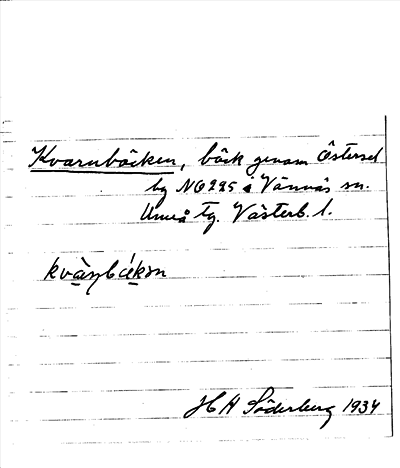 Kvarnbäcken, bäck genom Östersel
by NO225 i Vännäs sn.
Umeå tg. Västerb. l.
kvà̱ɳbɛ́kən
H A Söderberg 1934